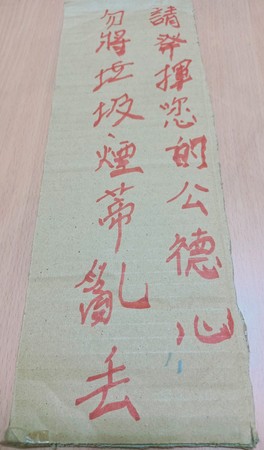 請發揮您的公德心
勿將垃圾、煙蒂亂丢